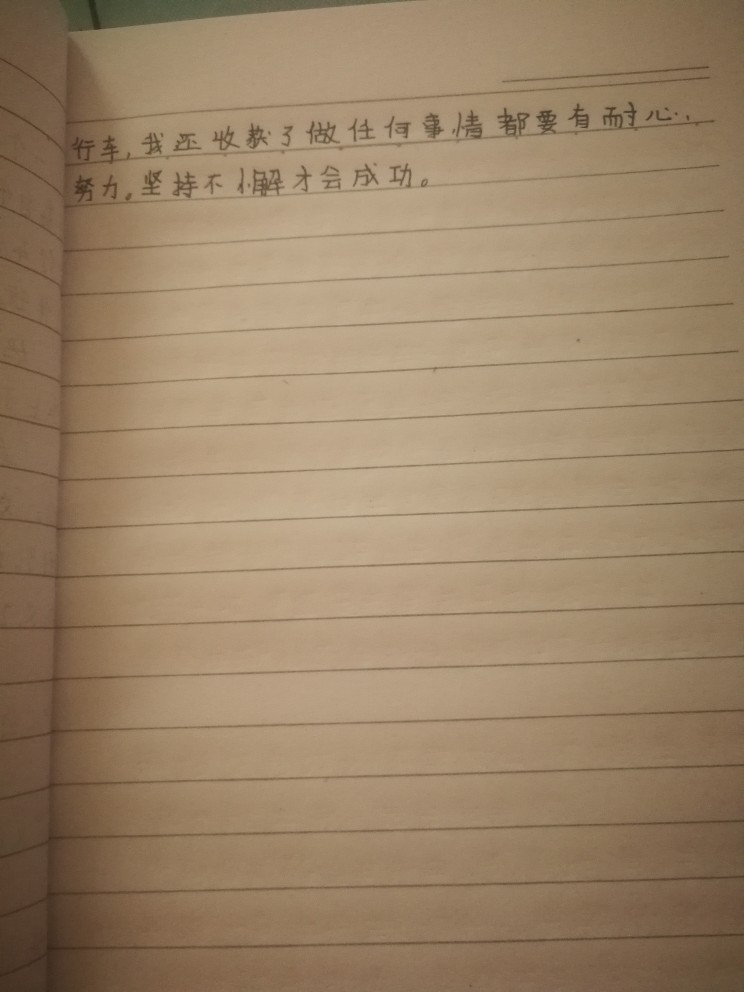 行车,我还收获了做任何事情都要有耐心、
努力。坚持不懈才会成功。